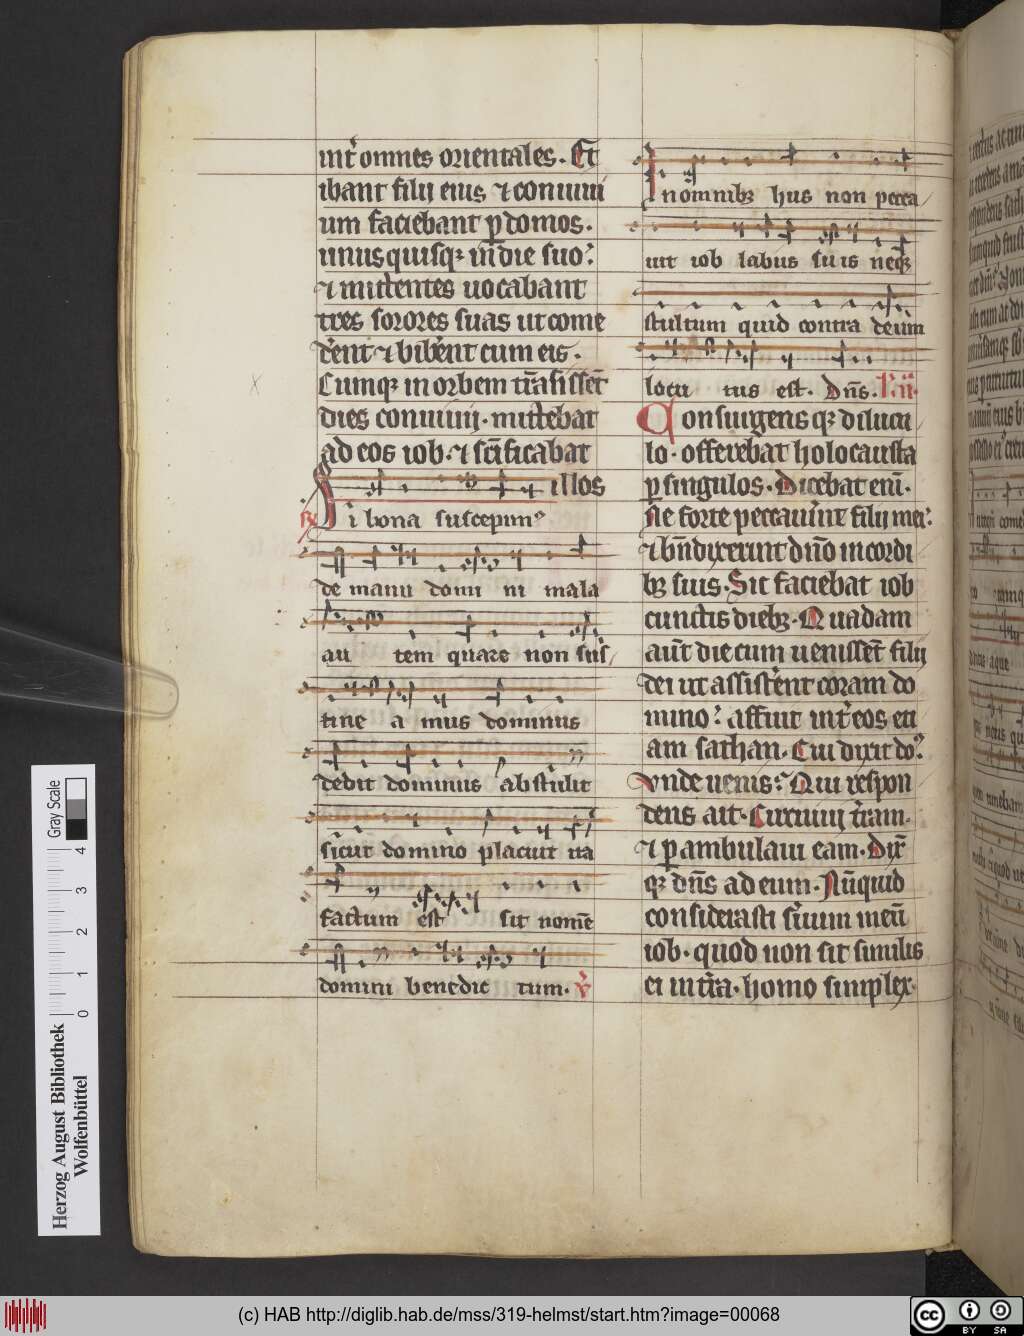 int̄ omnes orientales. Et
ibant filij eius ⁊ conuiui
um faciebant ꝑ domos.
unusquisqꝫ in die suo.
⁊ mittentes uocabant
tres sorores suas ut come
derēnt ⁊ bibērent cum eis.
Cumqꝫ in orbem trāsissēt
dies conuiuij. mittebat
ad eos iob. ⁊ sc̄ificabat
illos
℟ Si bona suscepimꝰ
de manu domi ni mala
au tem quare non sus
tine a mus dominus
dedit dominus abstulit
sicut domino placuit ita
factum est sit nomē
domini benedic tum. ℣
In omnibꝫ hiis non pecca
uit iob labiis suis neqꝫ
stultum quid contra deum
locu tus est. Dn̄s. l. ii.
Consurgens qꝫ dilucu
lo. offerebat holocausta
ꝑ singulos. Dicebat eni̅.
Ne forte peccauerint filij mei.
⁊ bn̄dixerint dn̄o in cordi
bꝫ suis. Sic faciebat iob
cunctis diebꝫ. Quadam
aut̄ die cum uenissēt filij
dei ut assisterent coram do
mino. affuit int̄ eos eti
am sathan. Cui dixit do.
Vnde uenis. Qui respon
dens ait. Circuiui t̄ram.
⁊ ꝑambulaui eam. Dix̄
qꝫ dn̄s ad eum. Nūquid
considerasti s̄uum meū
iob. quod non sit similis
ei in t̄ra. homo simplex.
Gray Scale
0 1 2 3 4
Herzog August Bibliothek
Wolfenbüttel
(c) HAB http://diglib.hab.de/mss/319-helmst/start.htm?image=00068
cc BY SA